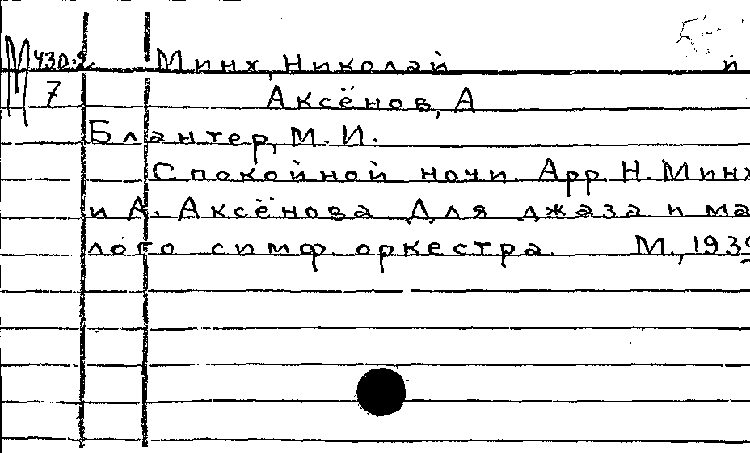 М 430.2 Минх, Николай и
7 Аксёнов, А
Блантер, М. И.
Спокойной ночи Арр. Н. Минх
и А. Аксёнова Для джаза и ма
лого симф. оркестра. М., 1939